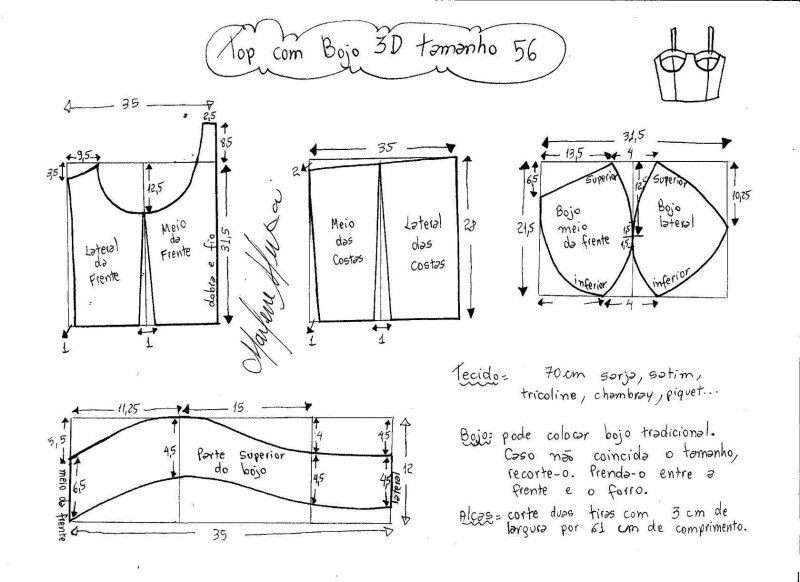 Top com Bojo 3D tamanho 56
35
2,5
9,5
3,5
8,5
12,5
Lateral
da
Frente
Meio
da
Frente
dobra e fio
31,5
1
1
Marlene Mukai
35
2
Meio
das
Costas
Lateral
das
Costas
28
1
1
31,5
13,5
4
6,5
superior
12,5
Superior
10,25
Bojo
meio
da frente
Bojo
lateral
21,5
1,5
1,5
inferior
inferior
4
11,25
15
5,5
4,5
Parte superior
do bojo
4
4,5
12
6,5
4,5
4,5
meio da frente
lateral
35
Tecido= 70cm sarja, satim,
tricoline, chambray, piquet...
Bojo= pode colocar bojo tradicional.
Caso não coincida o tamanho,
recorte-o. Prenda-o entre a
frente e o forro.
Alças= corte duas tiras com 3 cm de
largura por 61 cm de comprimento.